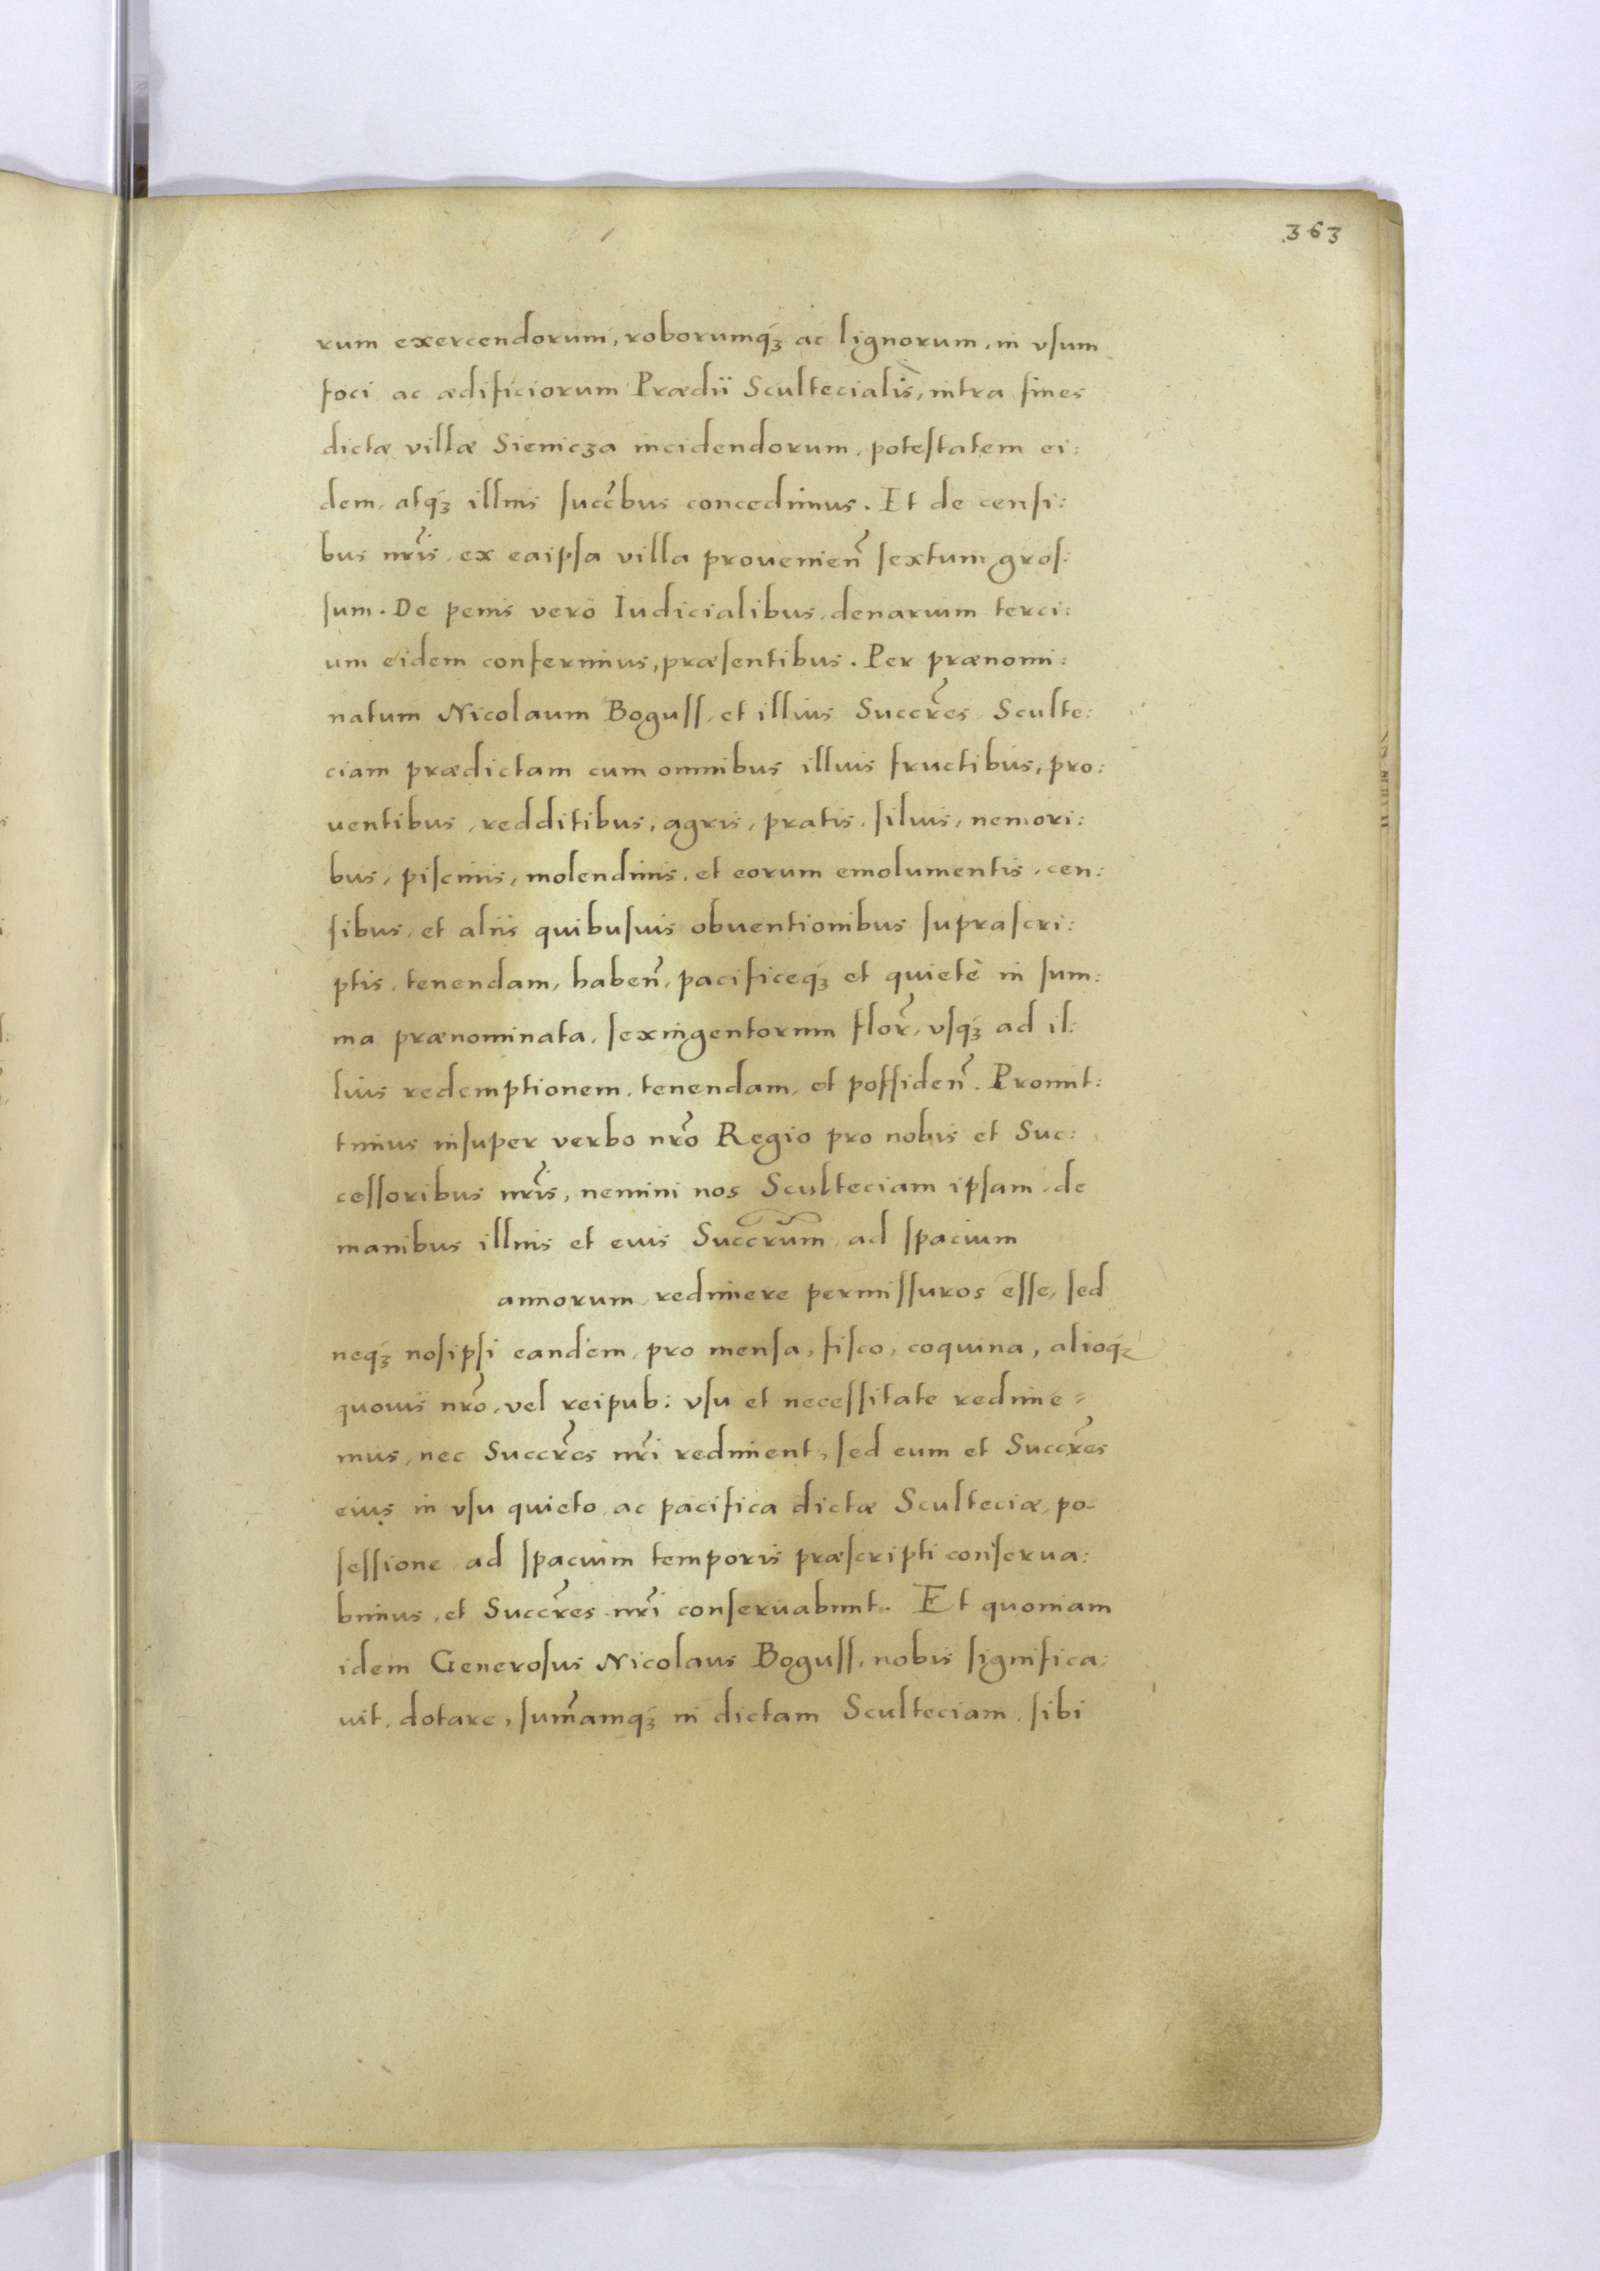 363
rum exercendorum, roborumq́ꝫ ac lignorum, in vſum
foci ac ædificiorum Prædii Scultecialis, intra fines
dictæ villæ Sieniczа incidendorum, poteſtatem ei:
dem, atq́ꝫ illius ſucc̃bus concedimus. Et de cenſi:
bus nr̃is, ex eaipſa villa prouenien̄ ſextum groſ:
ſum. De penis verò Iudicialibus, denarium terci:
um eidem conferimus, præſentibus. Per prænomi:
natum Nicolaum Boguſſ, et illius Succr̃es, Sculte:
ciam prædictam cum omnibus illius fructibus, pro:
uentibus, redditibus, agris, pratis, ſiluis, nemori:
bus, piſcinis, molendinis, et eorum emolumentis, cen:
ſibus, et aliis quibuſuis obuentionibus ſupraſcri:
ptis, tenendam, haben̄, pacificeq́ꝫ et quietè in ſum:
ma prænominata, ſexingentorum flor̃, vſq́ꝫ ad il:
lius redemptionem, tenendam, et poſſiden̄. Promit:
timus inſuper verbo nr̃o Regio pro nobis et Suc:
ceſſoribus nr̃is, nemini nos Sculteciam ipſam, de
manibus illius et eius Succrũm, ad ſpacium
annorum, redimere permiſſuros eſſe, ſed
neq́ꝫ noſipſi eandem, pro menſa, fiſco, coquina, alioq́ꝫ
quouis nr̃o, vel reipub: vſu et neceſſitate redime=
mus, nec Succr̃es nr̃i rediment, ſed eum et Succr̃es
eius in vſu quieto, ac pacifica dictæ Sculteciæ, po-
ſeſſione, ad ſpacium temporis præſcripti conſerua:
bimus, et Succr̃es nr̃i conſeruabunt. Et quoniam
idem Generoſus Nicolaus Boguſſ, nobis ſignifica:
uit, dotare, ſum̄amq́ꝫ in dictam Sculteciam, ſibi